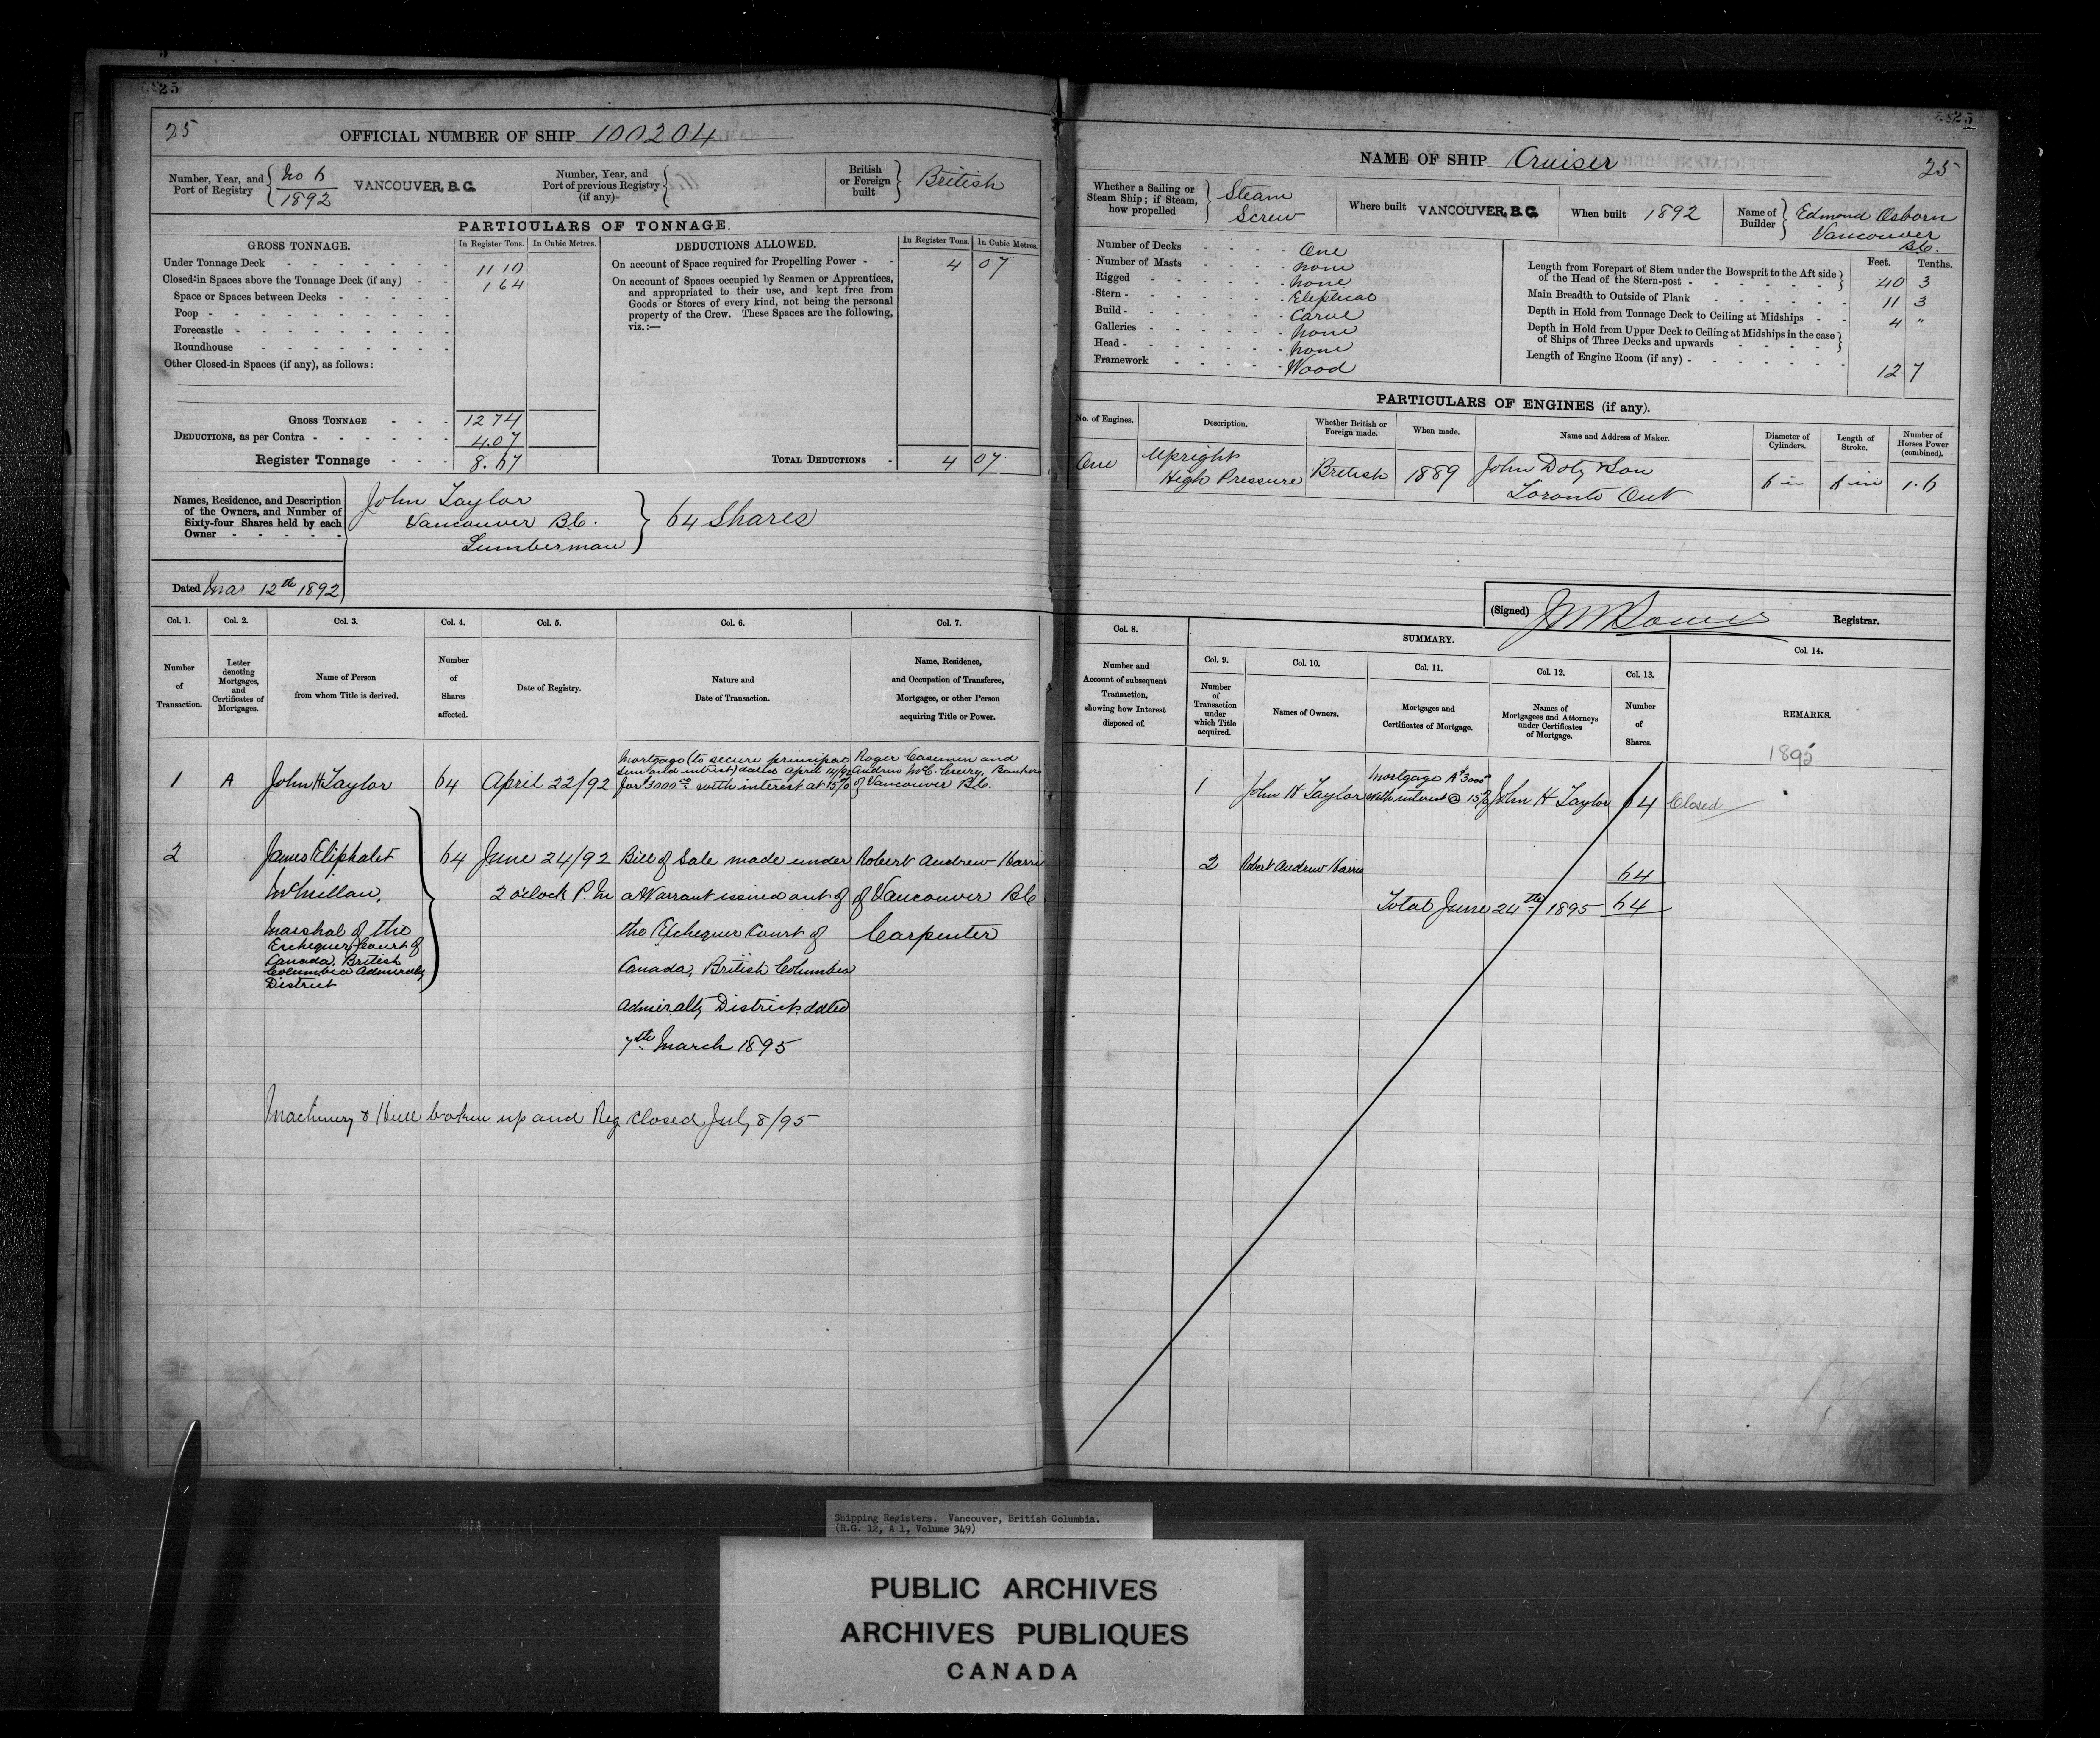 25
25
OFFICIAL NUMBER OF SHIP 100204
Number, Year, and Port of Registry { No 6 1892 VANCOUVER, B.C.
Number, Year, and Port of previous Registry (if any) {
British or Foreign built } British
PARTICULARS OF TONNAGE.
GROSS TONNAGE. In Register Tons. In Cubic Metres. DEDUCTIONS ALLOWED. In Register Tons. In Cubic Metres.
Under Tonnage Deck 11 10 On account of Space required for Propelling Power 4 07
Closed-in Spaces above the Tonnage Deck (if any) 1 64
Space or Spaces between Decks
Poop
Forecastle
Roundhouse
Other Closed-in Spaces (if any), as follows:
On account of Spaces occupied by Seamen or Apprentices,
and appropriated to their use, and kept free from
Goods or Stores of every kind, not being the personal
property of the Crew. These Spaces are the following,
viz.:—
GROSS TONNAGE 12 74
DEDUCTIONS, as per Contra 4.07
Register Tonnage 8.67 TOTAL DEDUCTIONS 4 07
Names, Residence, and Description
of the Owners, and Number of
Sixty-four Shares held by each
Owner
John Taylor
Vancouver B.C. } 64 Shares
Lumberman
Dated Mar 12th 1892
Col. 1. Col. 2. Col. 3. Col. 4. Col. 5. Col. 6. Col. 7.
Number of Transaction.
Letter denoting Mortgages, and Certificates of Mortgages.
Name of Person from whom Title is derived.
Number of Shares affected.
Date of Registry.
Nature and Date of Transaction.
Name, Residence, and Occupation of Transferee, Mortgagee, or other Person acquiring Title or Power.
1 A John H Taylor 64 April 22/92
Mortgage (to secure principal
sum and interest) dated April 14/92
for $3000.00 with interest at 15%
Roger Casemen and
Andrew McC. Creery, Bankers
of Vancouver B.C.
2 James Eliphalet 64 June 24/92 Bill of Sale made under Robert Andrew Harris
McMillan, 2 o'clock P.M a Warrant issued out of of Vancouver B.C
Marshal of the the Exchequer Court of Carpenter
Exchequer Court of
Canada, British Canada, British Columbia
Columbia Admiralty
District
Admiralty District dated
7th March 1895
Machinery & Hull broken up and Reg closed July 8/95
25
NAME OF SHIP Cruiser 25
Whether a Sailing or Steam Ship; if Steam, how propelled } Steam Screw
Where built VANCOUVER, B.C.
When built 1892
Name of Builder } Edmond Osborn
Vancouver
B.C.
Number of Decks One
Number of Masts None
Rigged None
Stern Eliptical
Build Carvel
Galleries None
Head None
Framework Wood
Feet. Tenths.
Length from Forepart of Stem under the Bowsprit to the Aft side
of the Head of the Stern-post 40 3
Main Breadth to Outside of Plank 11 3
Depth in Hold from Tonnage Deck to Ceiling at Midships 4 "
Depth in Hold from Upper Deck to Ceiling at Midships in the case
of Ships of Three Decks and upwards
Length of Engine Room (if any) 12 7
PARTICULARS OF ENGINES (if any).
No. of Engines. Description. Whether British or Foreign made. When made. Name and Address of Maker. Diameter of Cylinders. Length of Stroke. Number of Horses Power (combined).
One Upright High Pressure British 1889 John Doty & Son Toronto Ont 6 in 6 in 1.6
(Signed) Registrar.
Col. 8. SUMMARY. Col. 14.
Col. 9. Col. 10. Col. 11. Col. 12. Col. 13.
Number and Account of subsequent Transaction, showing how Interest disposed of.
Number of Transaction under which Title acquired.
Names of Owners.
Mortgages and Certificates of Mortgage.
Names of Mortgagees and Attorneys under Certificates of Mortgage.
Number of Shares.
REMARKS.
1895
1 John H Taylor Mortgage A $3000 with interest @ 15% John H Taylor 64 Closed
2 Robert Andrew Harris 64
Total June 24th 1895 64
Shipping Registers. Vancouver, British Columbia.
(R.G. 12, A 1, Volume 349)
PUBLIC ARCHIVES
ARCHIVES PUBLIQUES
CANADA